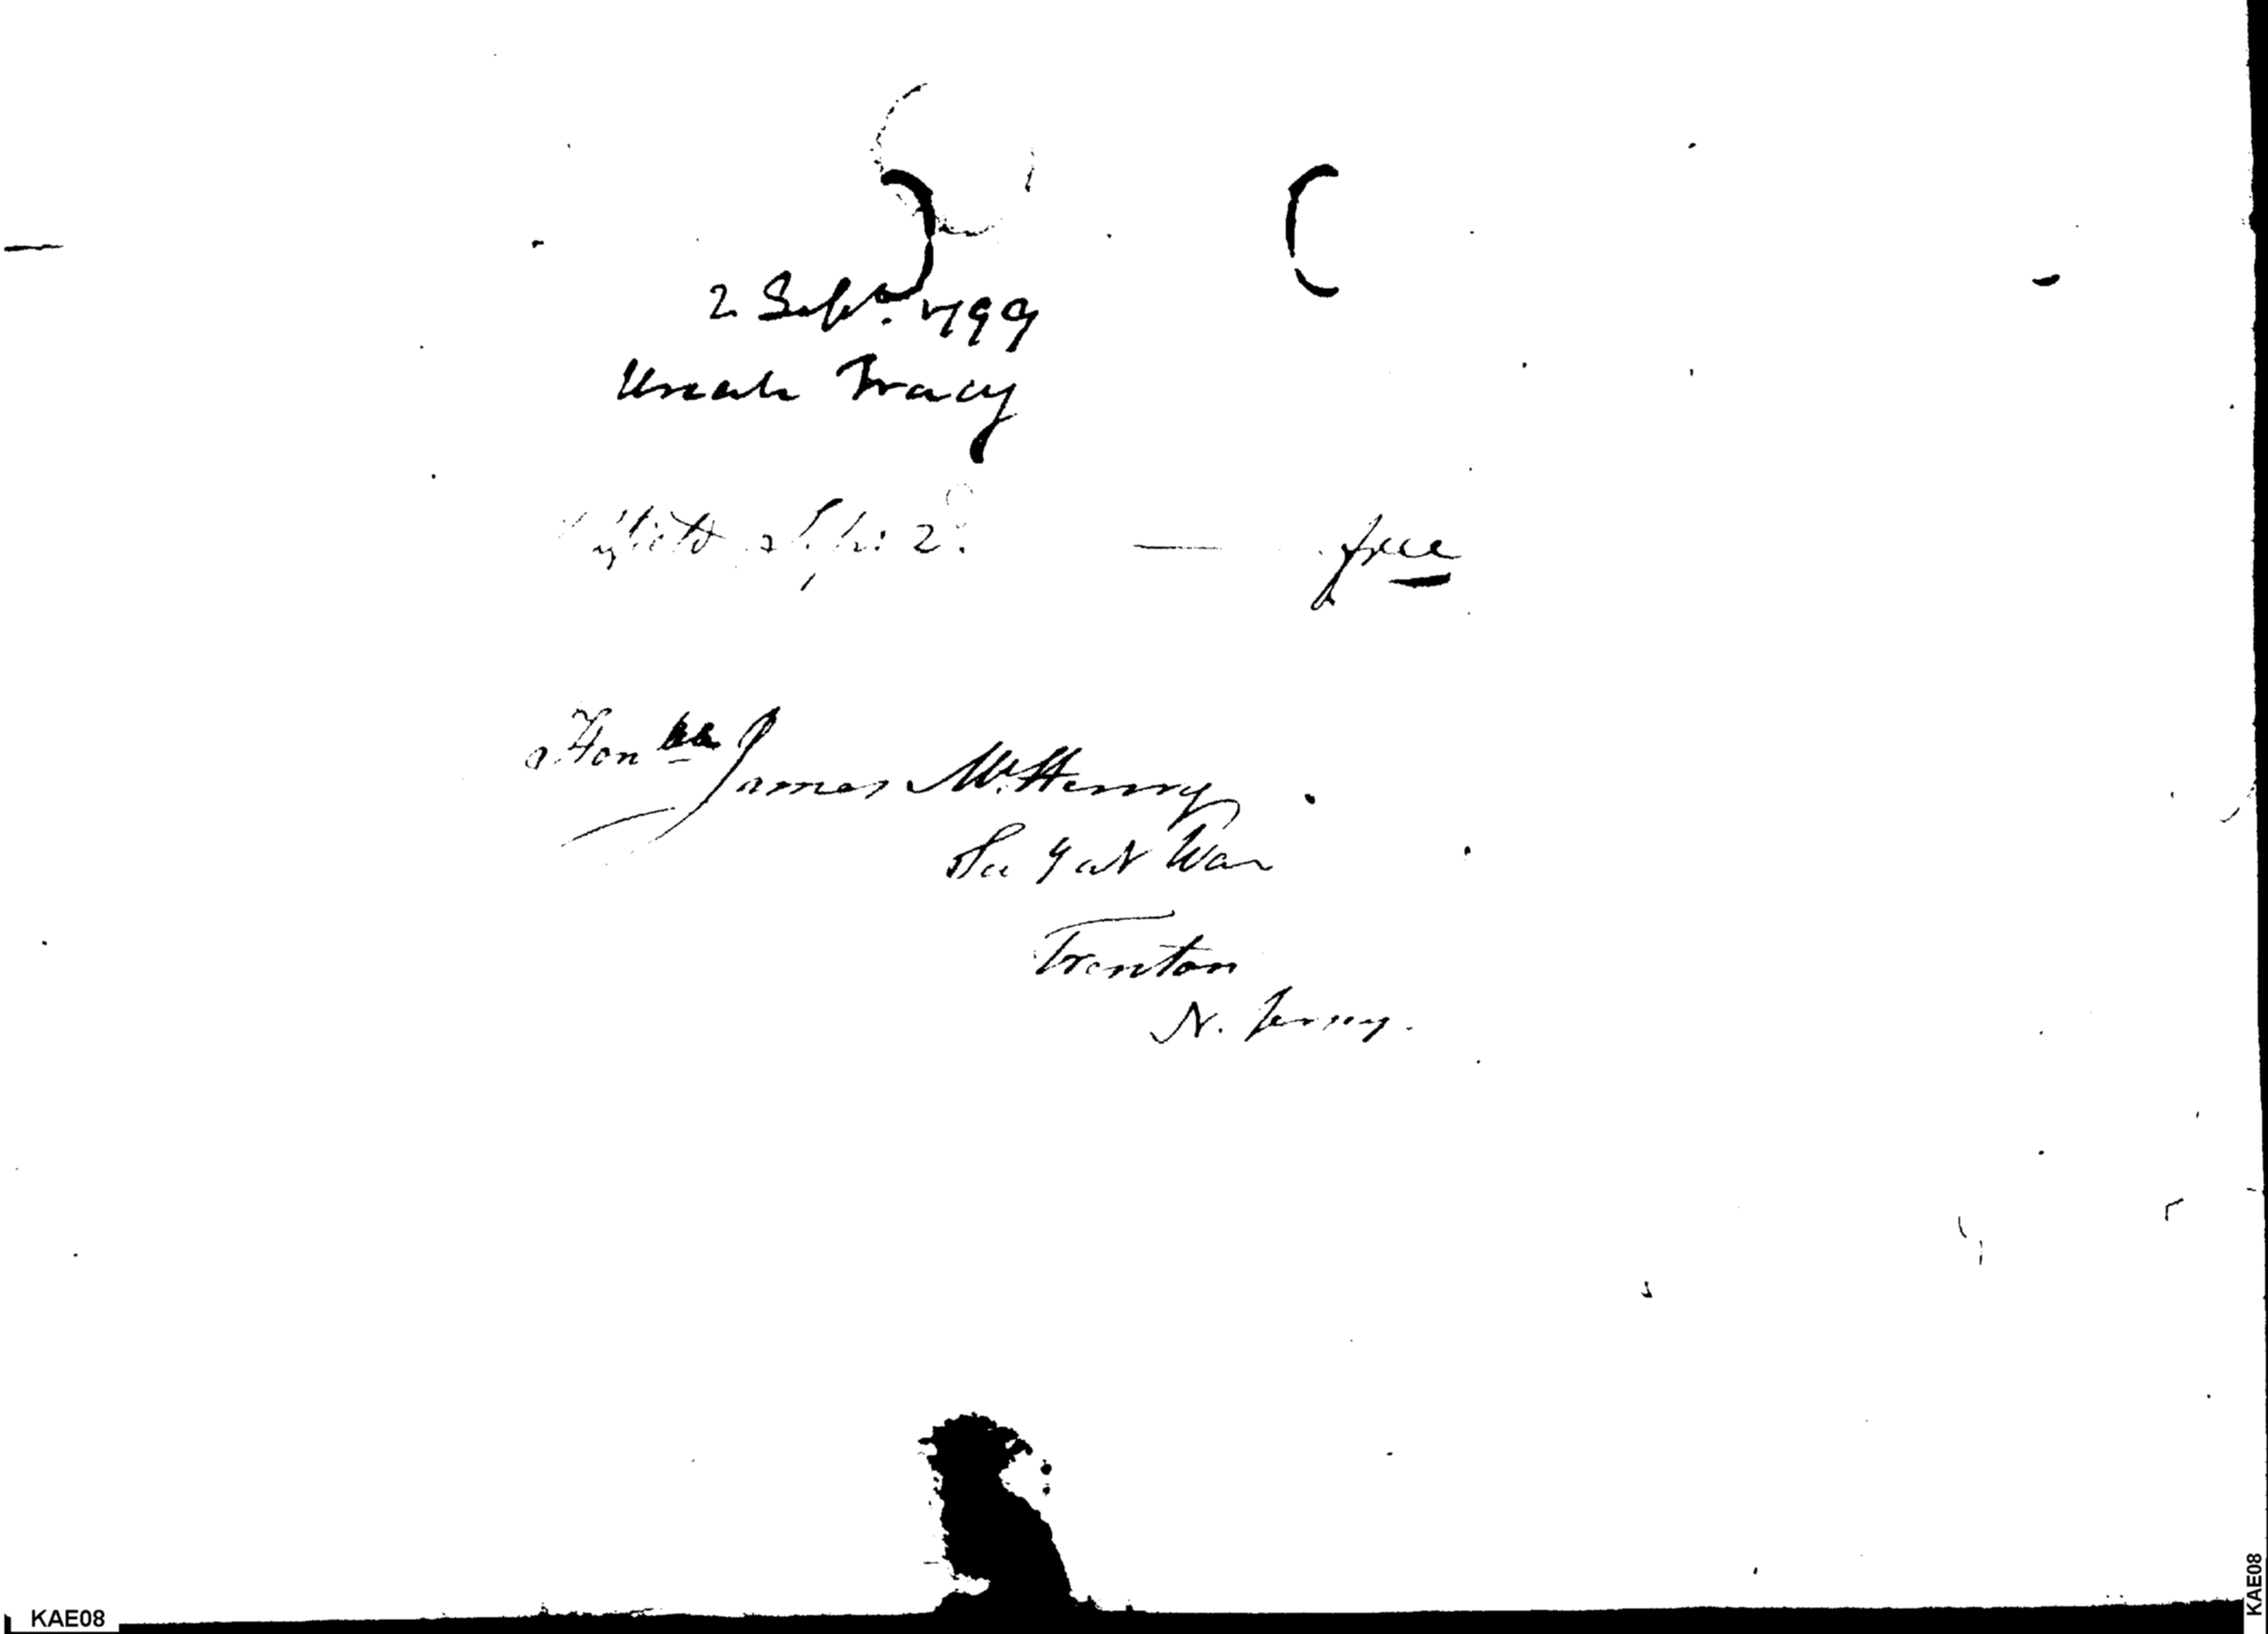 2 Sept. 1799
Uriah Tracy
Sept: 2d. — free
Honble James McHenry
Secy at War
Trenton
N. Jersey.
KAE08
KAE08